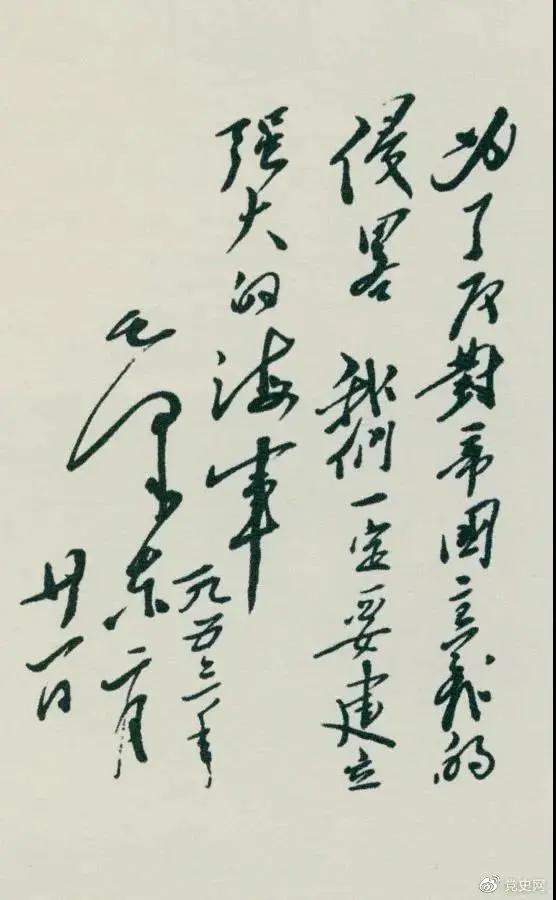 为了反對帝國主義的
侵畧 我們一定要建立
强大的海軍
毛泽东
一九五三年
二月
廿一日
党史网